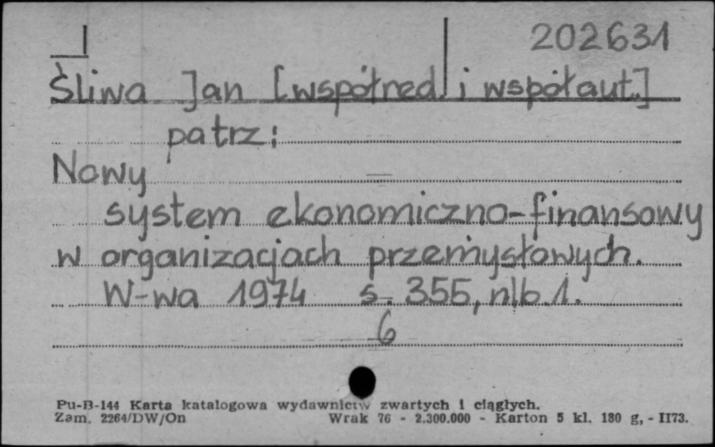 I
202631
Śliwa Jan [współred. i współaut.]
patrz:
Nowy
system ekonomiczno-finansowy
w organizacjach przemysłowych.
W-wa 1974 s. 355, nlb. 1.
6
Pu-B-144 Karta katalogowa wydawnictw zwartych i ciągłych.
Zam. 2264/DW/On Wrak 76 - 2.300.000 - Karton 5 kl. 180 g, - II73.